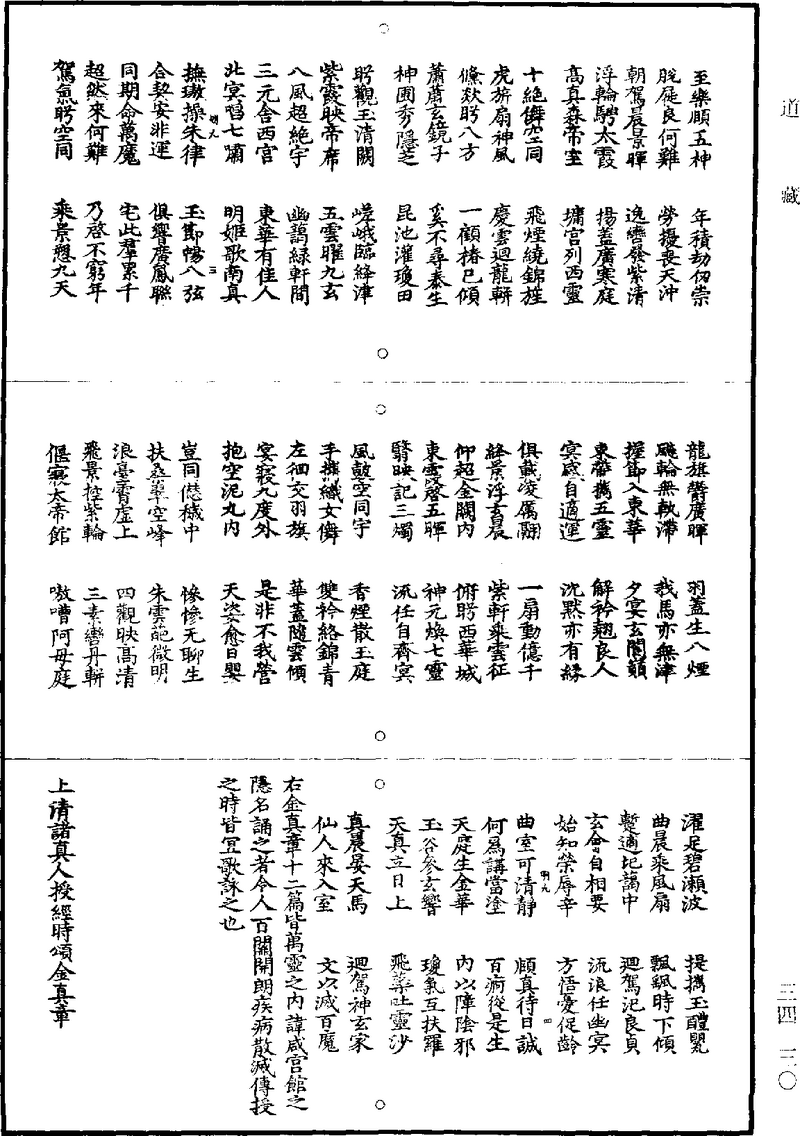 道藏
至樂順五神　年積劫仞崇
脫屣良何難　勞擾喪天沖
朝駕晨景暉　逸轡發紫清
浮輪騁太霞　揚蓋廣寒庭
高真森帝室　墉宮列西靈
十絕儛空同　飛煙繞錦旌
虎旂扇神風　慶雲迴龍軿
倏欻眄八方　一顧椿已傾
蕭蕭玄鏡子　奚不尋泰生
神圃秀隱芝　昆池灌瓊田
眄觀玉清闕　嵯峨臨絳津
紫霞映帝席　五雲曜九玄
八風超絕宇　幽藹綠軒間
三元舍西宮　東華有佳人
北宴唱七嘯　明姬歌南真
明九　三
撫璈操朱律　玉節暢八弦
合契安非運　俱響廣鳳聯
同期命萬魔　宅此羣累千
超然來何難　乃啓不窮年
駕氣眄空同　乘景憩九天
龍旂欝廣暉　羽蓋生八煙
飈輪無執滯　我馬亦無津
握節入東華　夕宴玄顛
東帶攜五靈　解衿翹良人
冥感自適運　沈默亦有緣
俱載淩厲翮　一扇動億千
終景浮玄晨　紫軒乘雲征
仰超金闕內　俯眄西華城
東霞啓五暉　神元煥七靈
翳映記三燭　流任自齊冥
風鼓空同宇　香煙散玉庭
手攜織女儛　雙衿絡錦青
左徊交羽旗　華蓋隨雲傾
宴寢九度外　是非不我營
抱空泥丸內　天姿愈日嬰
豈同穢中　慘慘无聊生
扶桑翠空峰　朱雲葩微明
浪臺霄虛上　四觀映高清
飛景控紫輪　三素轡丹軿
偃寢太帝館　嗷嘈阿母庭
濯足碧瀬波　提攜玉醴甖
曲晨乘風扇　飄颻時下傾
暫適圮藹中　迴駕汜良貞
玄會自相要　流浪任幽冥
始知榮辱辛　方悟憂促齡
明九　四
曲室可清靜　頤真待日誠
何爲講當塗　百痾從是生
天庭生金華　內以障陰邪
玉谷參玄響　瓊氣互扶羅
天真立日上　飛蘂吐靈沙
真晨晏天馬　迴駕神玄家
仙人來入室　文以滅百魔
右金真章十二篇皆萬靈之內諱咸宮館之
隱名誦之者令人百關開朗疾病散滅傳授
之時皆宜歌詠之也
上清諸真人授經時頌金真章
三四—三〇